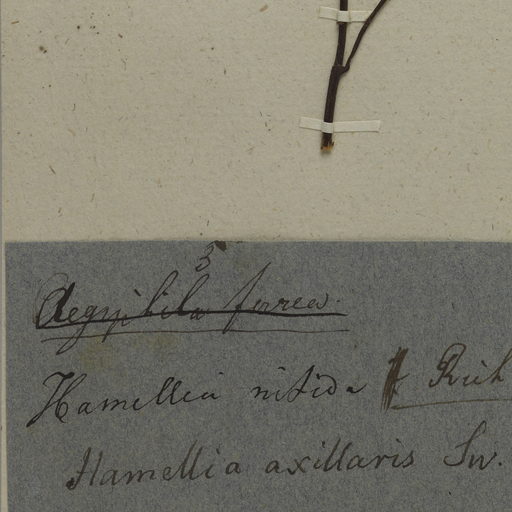 3
Aegiphila ferrea.
Hamellia nitida Rich
Hamellia axillaris Sw.